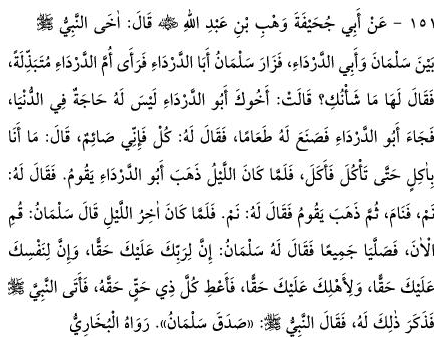 ١٥١ - عَنْ أَبِي جُحَيْفَةَ وَهْبِ بْنِ عَبْدِ اللهِ ﵁ قَالَ: اٰخَى النَّبِيُّ ﷺ
بَيْنَ سَلْمَانَ وَأَبِي الدَّرْدَاءِ، فَزَارَ سَلْمَانُ أَبَا الدَّرْدَاءِ فَرَأَى أُمَّ الدَّرْدَاءِ مُتَبَذِّلَةً،
فَقَالَ لَهَا مَا شَأْنُكِ؟ قَالَتْ: أَخُوكَ أَبُو الدَّرْدَاءِ لَيْسَ لَهُ حَاجَةٌ فِي الدُّنْيَا،
فَجَاءَ أَبُو الدَّرْدَاءِ فَصَنَعَ لَهُ طَعَامًا، فَقَالَ لَهُ: كُلْ فَإِنِّي صَائِمٌ، قَالَ: مَا أَنَا
بِاٰكِلٍ حَتَّى تَأْكُلَ فَأَكَلَ، فَلَمَّا كَانَ اللَّيْلُ ذَهَبَ أَبُو الدَّرْدَاءِ يَقُومُ. فَقَالَ لَهُ:
نَمْ، فَنَامَ، ثُمَّ ذَهَبَ يَقُومُ فَقَالَ لَهُ: نَمْ. فَلَمَّا كَانَ اٰخِرُ اللَّيْلِ قَالَ سَلْمَانُ: قُمِ
الْاٰنَ، فَصَلَّيَا جَمِيعًا فَقَالَ لَهُ سَلْمَانُ: إِنَّ لِرَبِّكَ عَلَيْكَ حَقًّا، وَإِنَّ لِنَفْسِكَ
عَلَيْكَ حَقًّا، وَلِأَهْلِكَ عَلَيْكَ حَقًّا، فَأَعْطِ كُلَّ ذِي حَقٍّ حَقَّهُ، فَأَتَى النَّبِيَّ ﷺ
فَذَكَرَ ذٰلِكَ لَهُ، فَقَالَ النَّبِيُّ ﷺ: «صَدَقَ سَلْمَانُ». رَوَاهُ الْبُخَارِيُّ